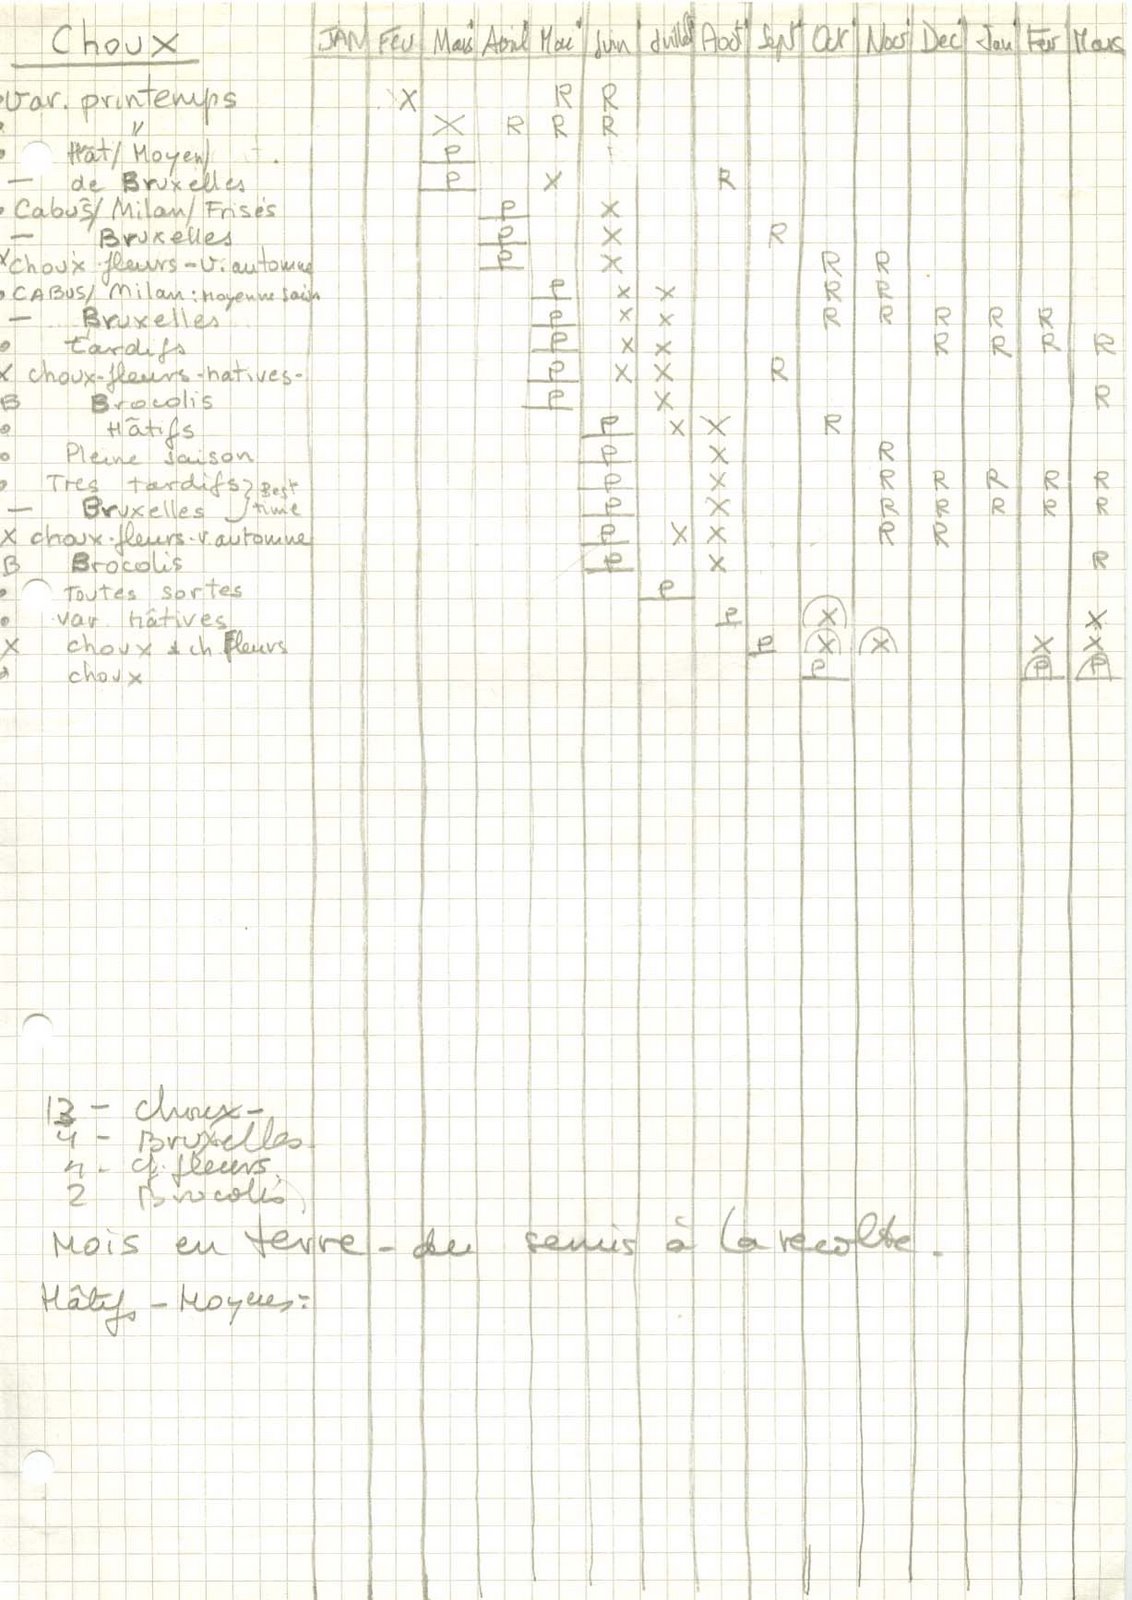 Choux JAN Fev Mars Avril Mai Juin Juillet Août Sept Oct Nov Dec Jan Fev Mars
Var. printemps X R R
" X R R R
Hât/ Moyen/ P
— de Bruxelles P X R
Cabus/ Milan/ Frisés P X
— Bruxelles P X R
X choux fleurs - v. automne P X R R
CABUS/ Milan: moyenne saison P X X R R
— Bruxelles P X X R R R R R
tardifs P X X R R R R
X choux-fleurs-hatives- P X X R
B Brocolis P X R
Hâtifs P X X R
Pleine saison P X R
Tres tardifs } Best P X R R R R R
— Bruxelles } time P X R R R R R
X choux-fleurs-v. automne P X X R R
B Brocolis P X R
Toutes sortes P
var hâtives P X X
X choux & ch fleurs P X X X X
choux P P P
13 - choux -
4 - Bruxelles
4 - ch. fleurs
2 Brocolis
Mois en terre - du semis à la recolte.
Hâtifs - Moyens: